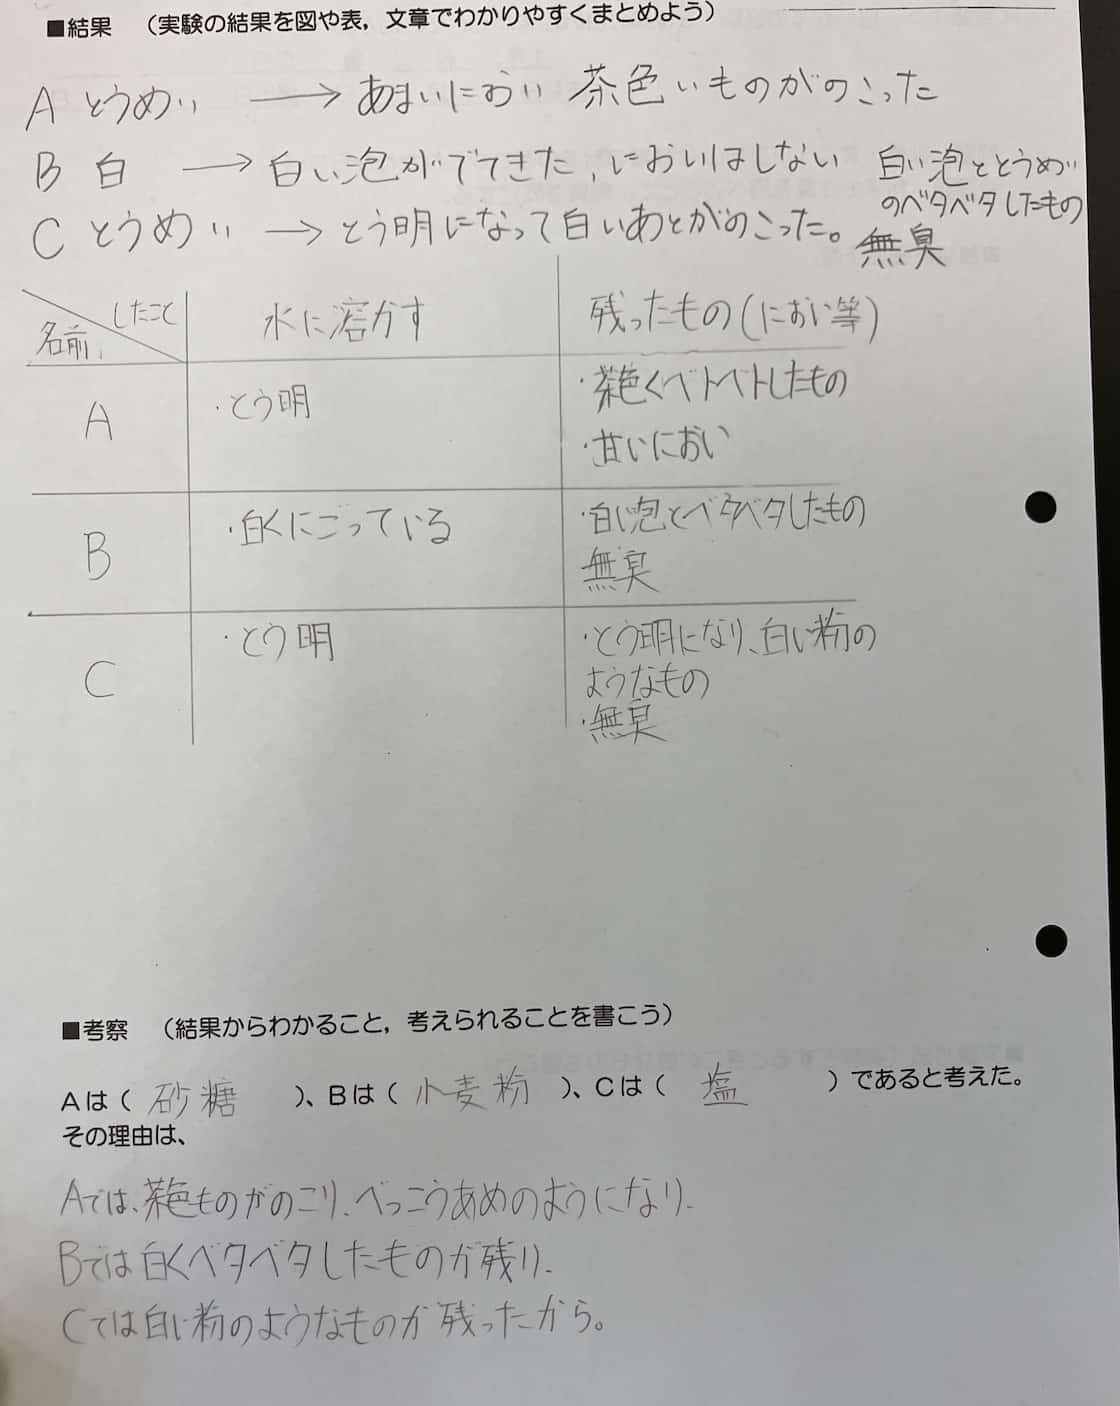 ■結果 （実験の結果を図や表，文章でわかりやすくまとめよう）
A とうめい → あまいにおい 茶色いものがのこった
B 白 → 白い泡がでてきた、においはしない 白い泡ととうめい
のベタベタしたもの
C とうめい → とう明になって白いあとがのこった。 無臭
したこと 水に溶かす 残ったもの(におい等)
名前
A ・とう明 ・茶色くベトベトしたもの
・甘いにおい
B ・白くにごっている ・白い泡とベタベタしたもの
無臭
C ・とう明 ・とう明になり、白い粉の
ようなもの
・無臭
■考察 （結果からわかること，考えられることを書こう）
Aは（ 砂糖 ）、Bは（ 小麦粉 ）、Cは（ 塩 ）であると考えた。
その理由は、
Aでは、茶色ものがのこり、べっこうあめのようになり、
Bでは白くベタベタしたものが残り、
Cでは白い粉のようなものが残ったから。